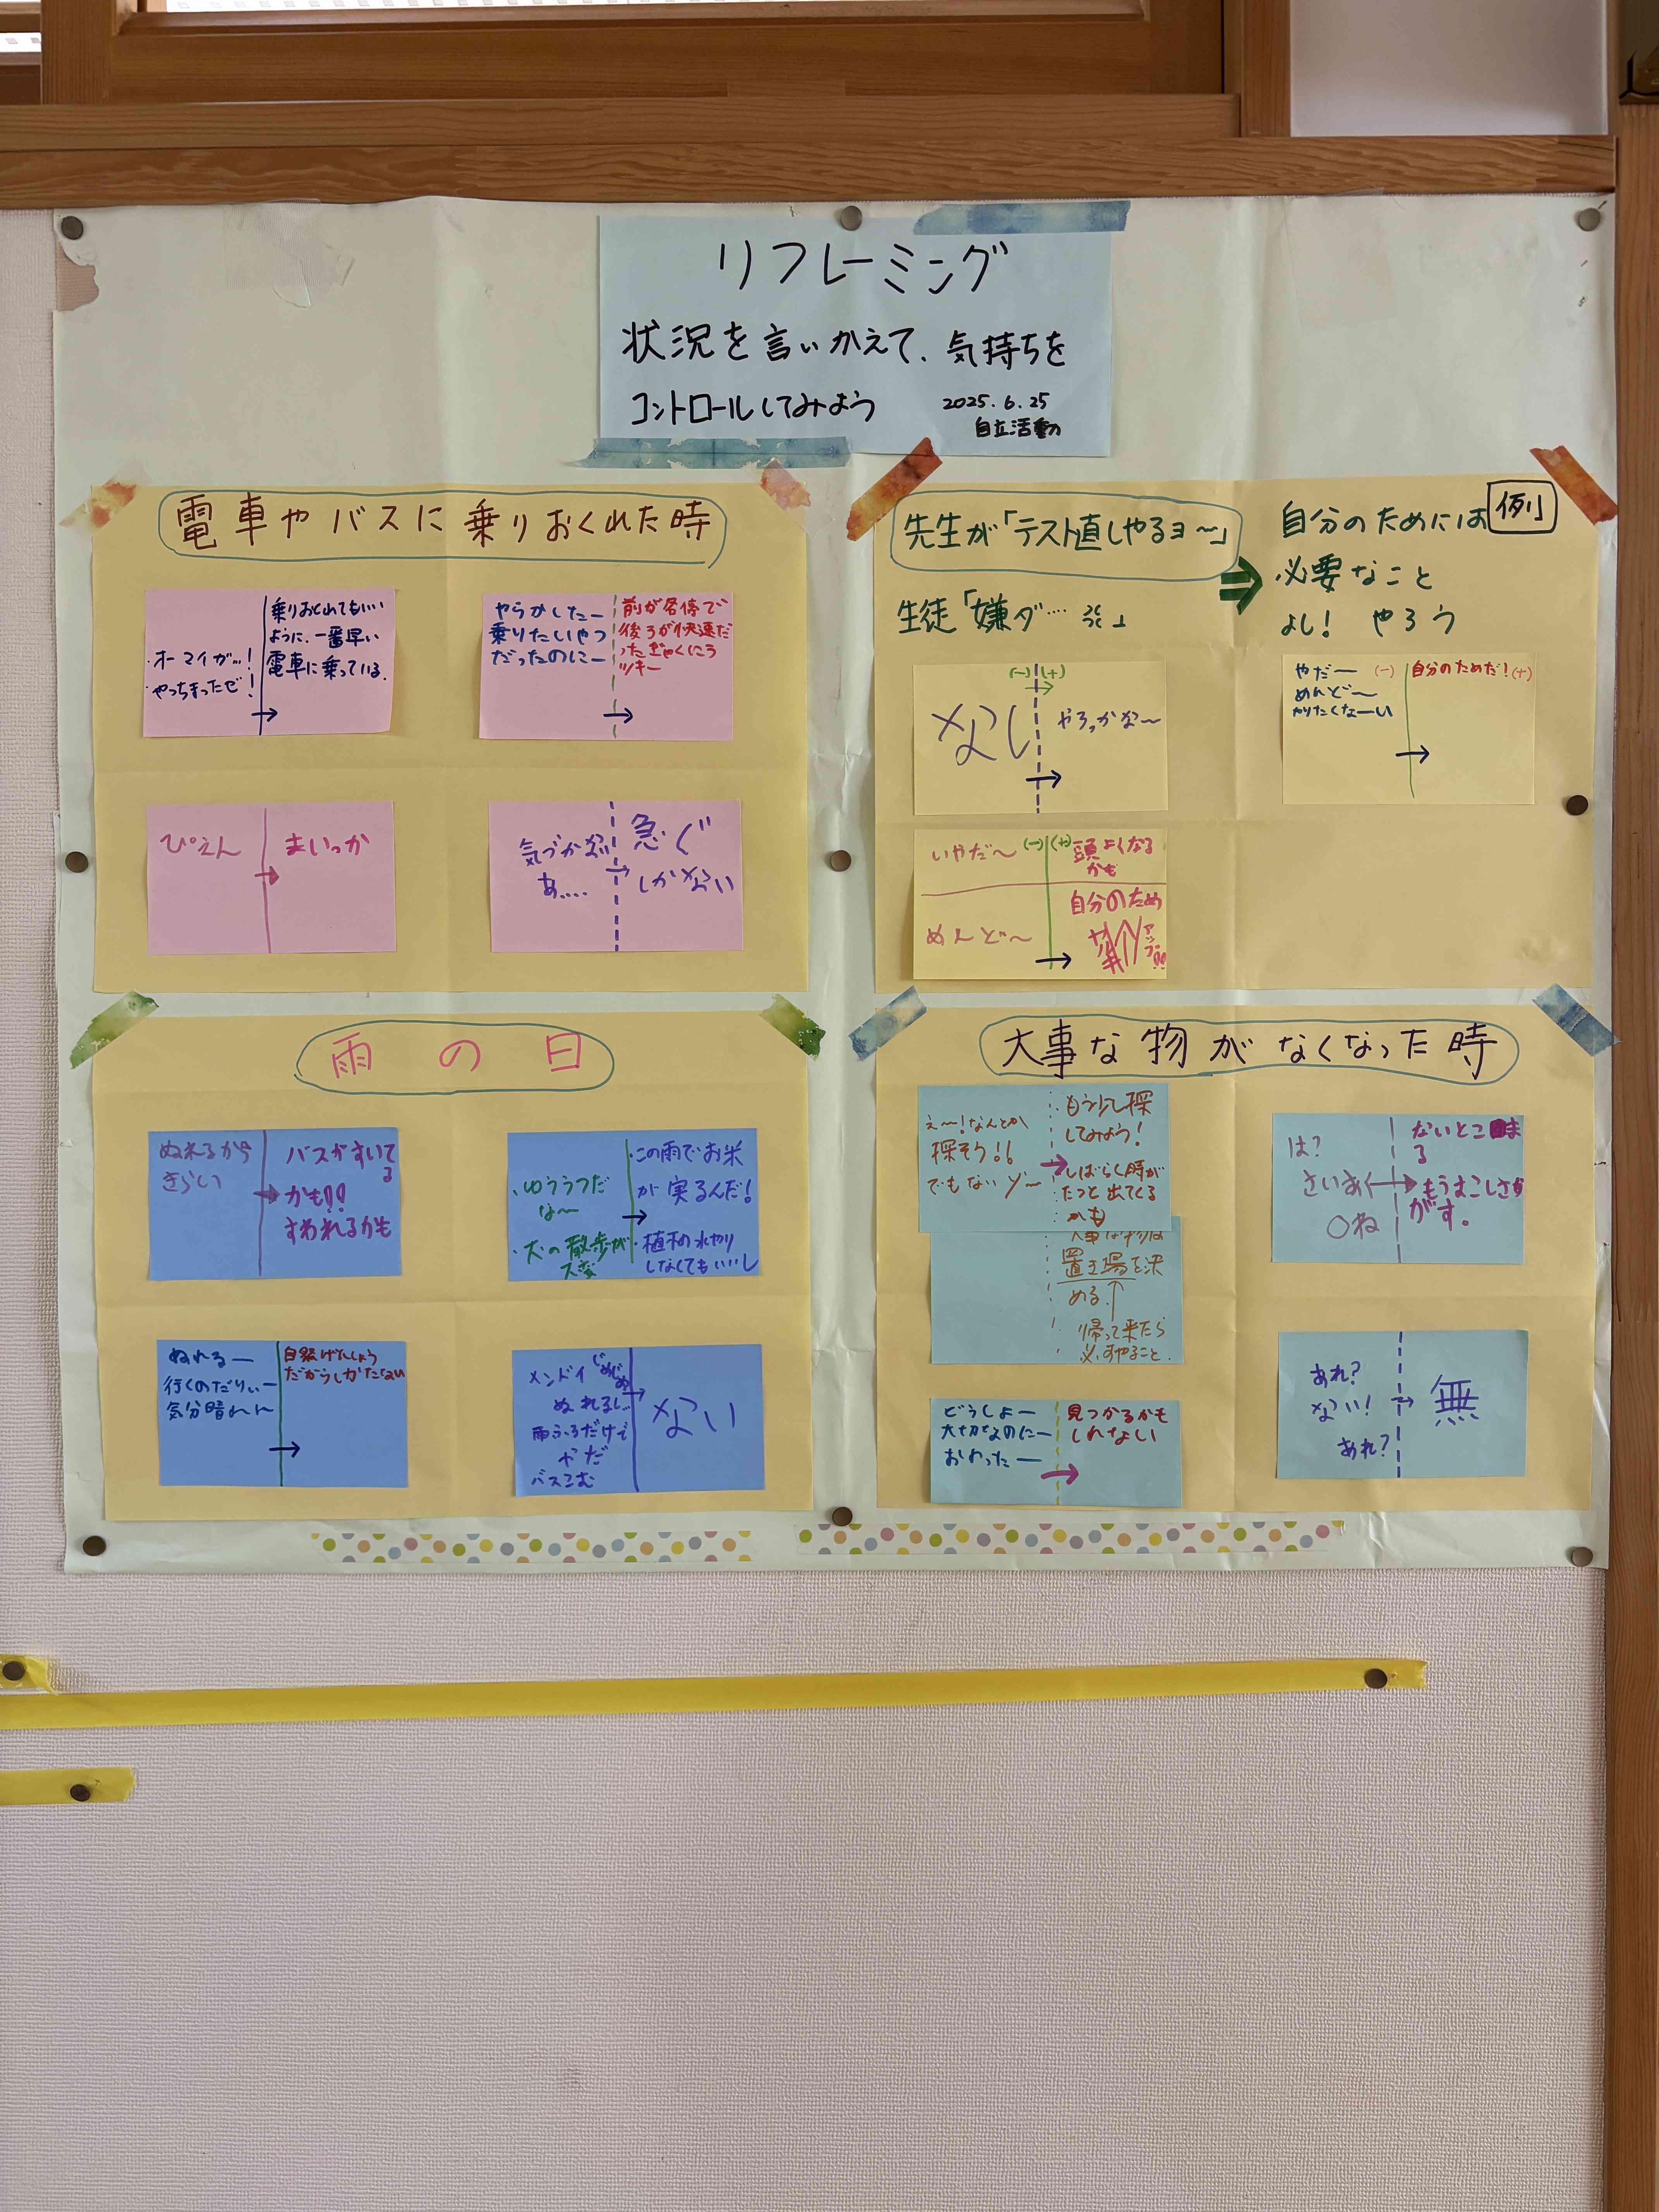 リフレーミング
状況を言いかえて、気持ちを
コントロールしてみよう
2025.6.25
自立活動
電車やバスに乗りおくれた時
・オーマイが…!
・やっちまったぜ!
乗りおくれてもいい
ように、一番早い
電車に乗っている。
やらかしたー
乗りたいやつ
だったのにー
前が各停で
後ろが快速だ
ったらぎゃくにラ
ッキー
ぴえん
まいっか
気づかない
あ....
急ぐ
しかない
例
先生が「テスト直しやるヨ〜」
生徒「嫌ダ…
自分のためには
必要なこと
よし! やろう
(-)
(+)
なし
やろっかな〜
やだー
(-)
めんど〜
やりたくなーい
自分のためだ!(+)
いやだ〜
(-)
(+)
頭よくなる
かも
めんど〜
自分のため
雨の日
ぬれるから
きらい
バスがすいて
る
かも!!
すわれるかも
・ゆううつだ
な〜
・犬の散歩が
大変
・この雨でお米
が実るんだ!
・植木の水やり
しなくてもいいし
ぬれるー
行くのだりぃー
気分晴れん
自然げんしょう
だからしかたない
メンドイ
じめじめ
ぬれるし
雨ふるだけで
やだ
バスこむ
ない
大事な物がなくなった時
え〜!なんとか
探そう!!
でもないゾ〜
・もう少し探
してみよう!
・しばらく時が
たつと出てくる
かも
大事な物は
置き場を決
める
帰って来たら
必ずやること.
は?
さいあく
〇ね
ないとこま
る
もうすこしさが
がす。
どうしよー
大切なのにー
おわったー
見つかるかも
しれない
あれ?
ない!
あれ?
無